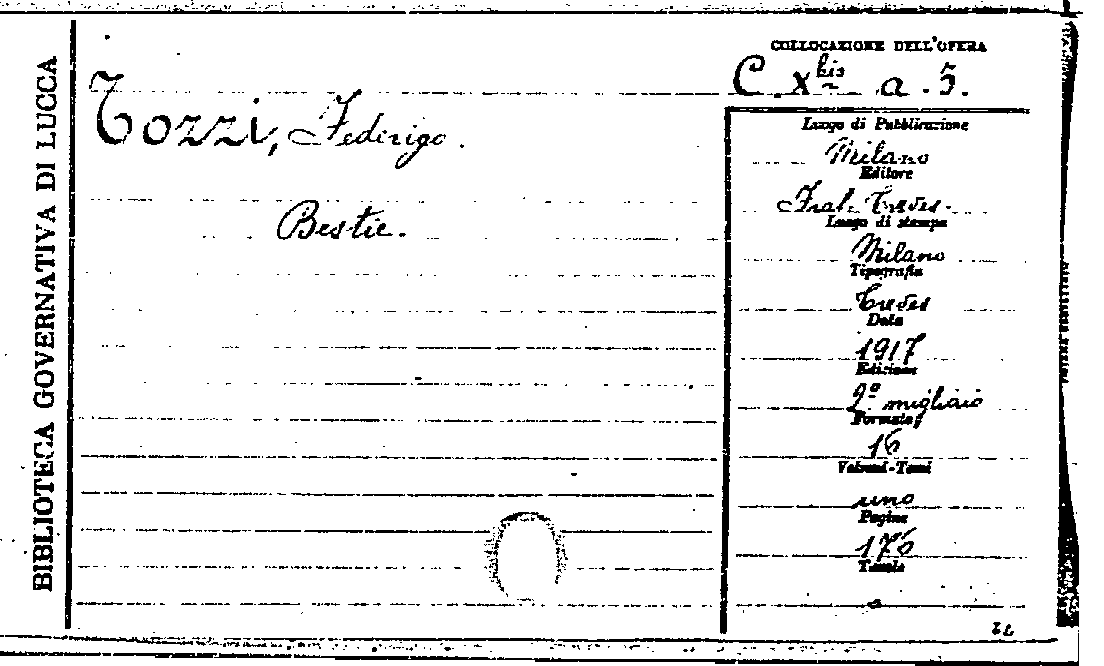 BIBLIOTECA GOVERNATIVA DI LUCCA
Tozzi, Federigo.
Bestie.
COLLOCAZIONE DELL'OPERA
C. X bis a. 5.
Luogo di Pubblicazione
Milano
Editore
Frat. Treves.
Luogo di stampa
Milano
Tipografia
Treves
Data
1917
Edizione
2º migliaio
Formato
16
Volumi-Tomi
uno
Pagine
176
Tavole